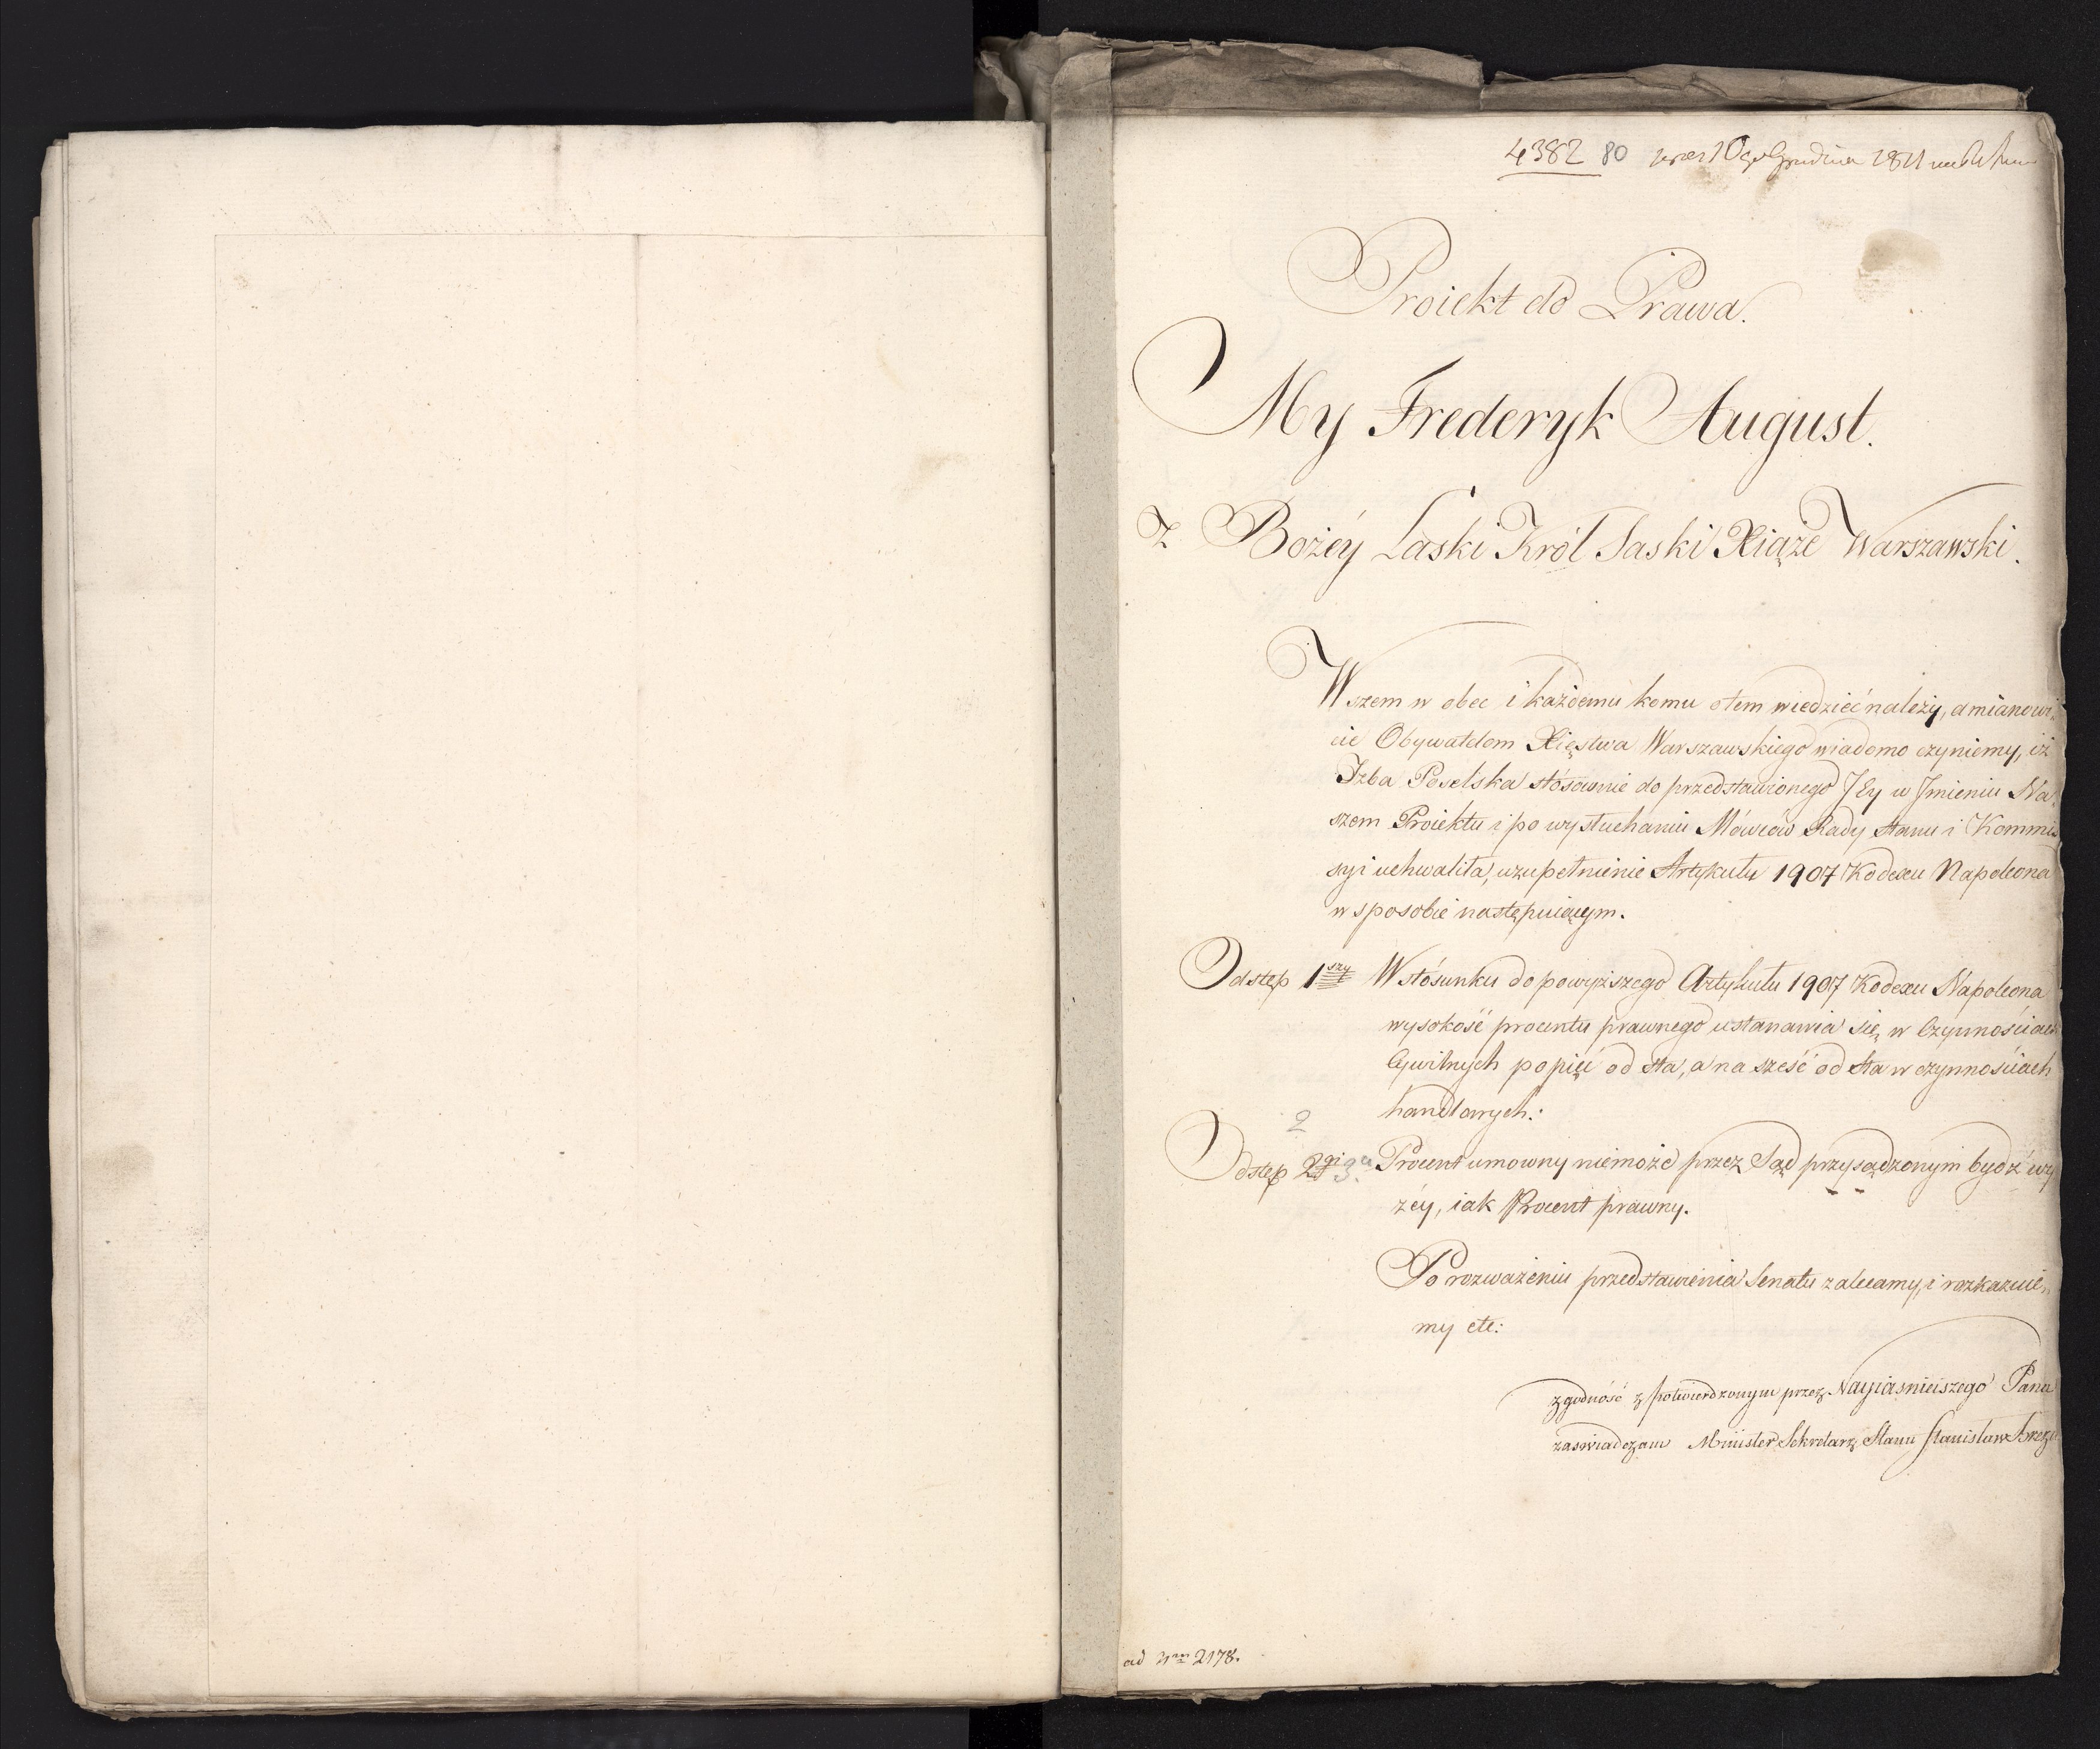 4382 80 10go Grudnia 1811
Proiekt do Prawa.
My Frederyk August.
Z Bożéy Łaski Król Saski Xiąże Warszawski.
Wszem w obec i każdemu komu otem wiedzieć należy, a mianowi-
cie Obywatelom Xięstwa Warszawskiego wiadomo czyniemy, iż
Izba Poselska stósownie do przedstawionego Jéy w Imieniu Na-
szem Proiektu i po wysłuchaniu Mówców Rady Stanu i Kommis
syi uchwaliła, uzupełnienie Artykułu 1907 Kodexu Napoleona
w sposobie następuiącym.
Odstęp 1szy W stósunku do powyższego Artykułu 1907 Kodexu Napoleona
wysokość procentu prawnego ustanawia się w Czynnościach
Cywilnych po pięć od sta, a na sześć od sta w czynnościach
handlowych:
2
Odstęp 2gi 3. Procent umowny niemoże przez Sąd przysądzonym bydź wy
żéy, iak Procent prawny.
Po rozważeniu przedstawienia Senatu zalecamy, i rozkazuie-
my etc:
zgodność z potwierdzonym przez Nayiaśnieiszego Pana
zaświadczam Minister Sekretarz Stanu Stanisław Breza
ad Num 2178.